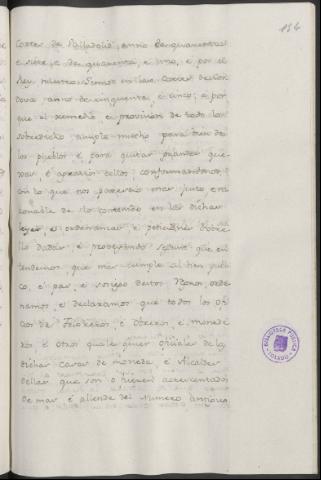 156
Cortes de Valladolid, anno de quarenta
e siete, e de quarenta, e uno, e por el
Rey nuestro Sennor en las Cortes de Cor
dova anno de cinquenta, e cinco; e por
que el remedio, e provision de todo lo
sobredicho cumple mucho para bien de
los pueblos e para quitar grandes que
xas, e agravios dellos; conformandonos,
con lo que nos parecerá mas justo, e ra
zonable de lo contenido en las dichas
leyes, e ordenanzas, e peticiones sobre
llo dadas, e proveyendo segun que en
tendemos que mas cumple al bien públi
co, e paz, e sosiego destos Regnos, orde
namos, e declaramos que todos los ofi
cios de Tesoreros, e Obreros, e monede
ros e otros qualesquier oficiales de las
dichas casas de moneda, e Alcaldes
dellas que son o fueren acrecentados
de mas, e allende del numero antiguo
BIBLIOTECA PUBLICA
TOLEDO